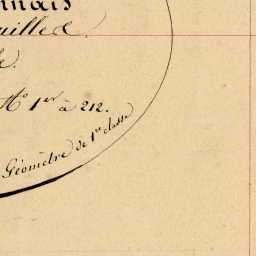 nnais
uille
N.º 1.er à 212.
Géomètre de 1re classe